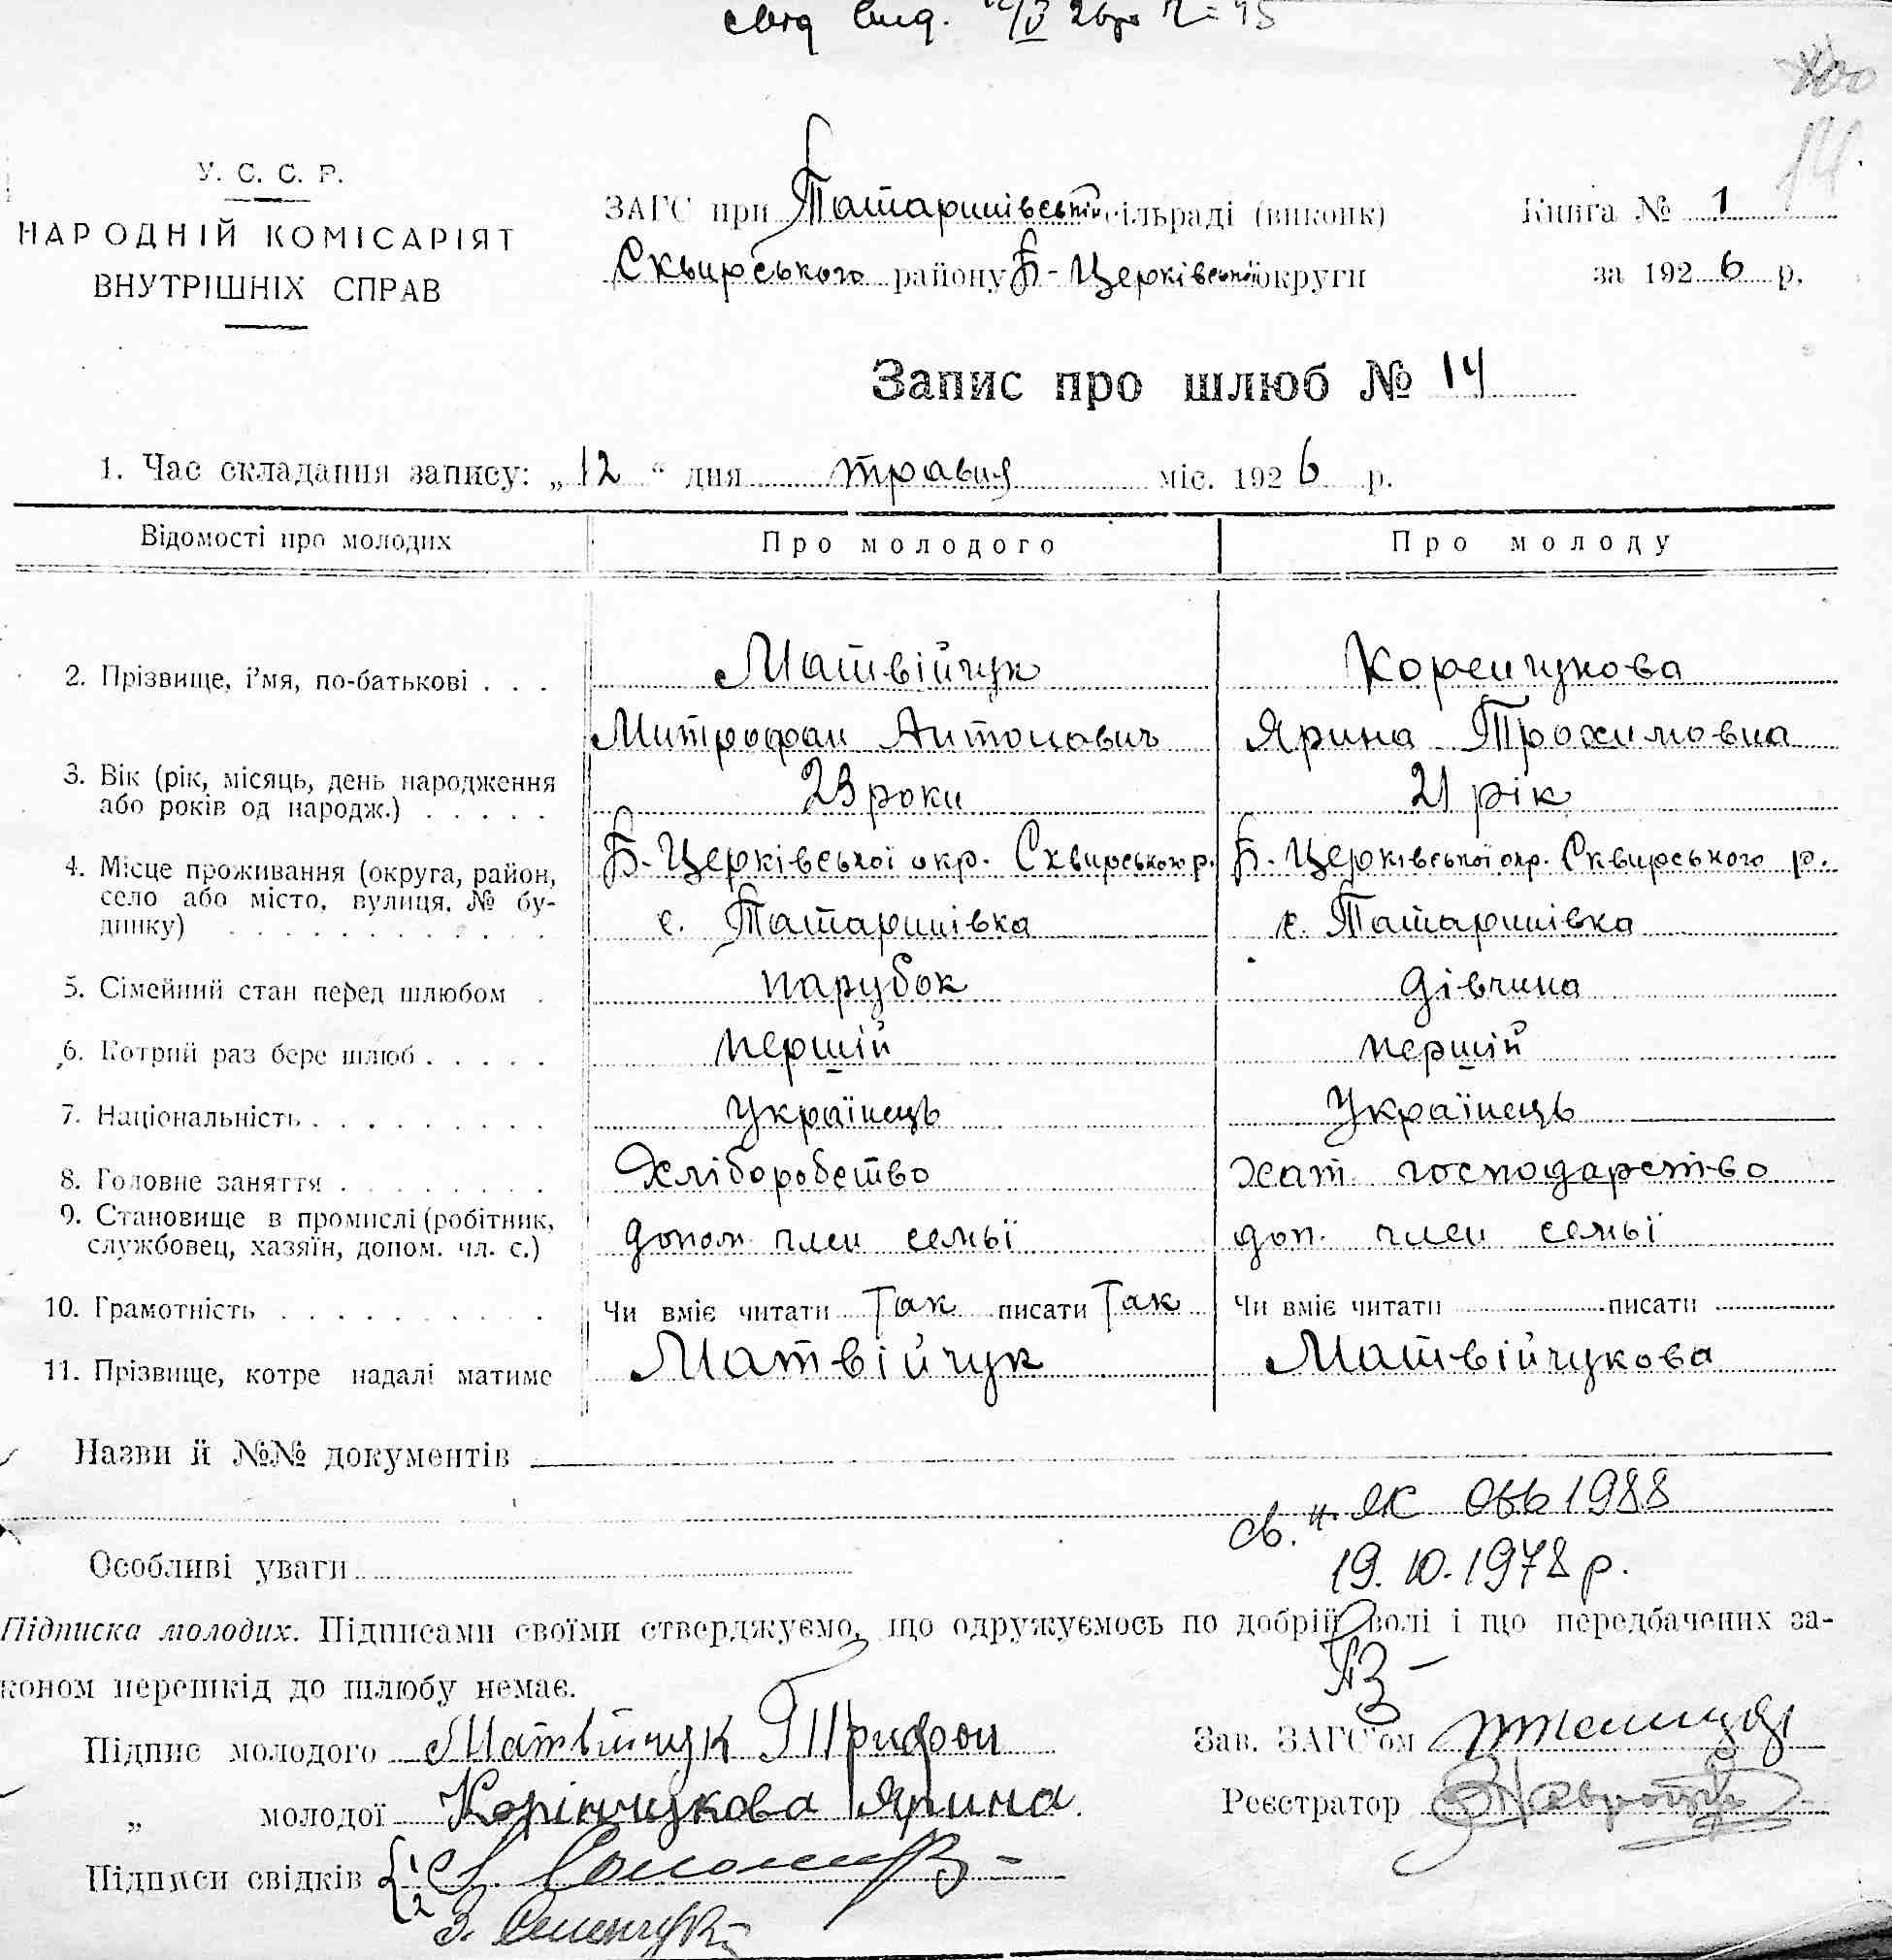 У. С. С. Р.
НАРОДНІЙ КОМІСАРІЯТ
ВНУТРІШНІХ СПРАВ
ЗАГС при Татаринівській сільраді (виконк)
Сквирського району Б-Церківської округи
Книга № 1
за 1926 р.
14
Запис про шлюб № 14
1. Час складання запису: „12“ дня травня міс. 1926 р.
Відомості про молодих Про молодого Про молоду
2. Прізвище, і'мя, по-батькові . . . Матвійчук Коренчукова
Митрофан Антонович Ярина Трохимовна
3. Вік (рік, місяць, день народження
або років од народж.) . . . . . 23 роки 21 рік
4. Місце проживання (округа, район,
село або місто, вулиця, № бу-
динку) . . . . . . . . . . . .
Б-Церківської окр. Сквирського р. Б. Церківської окр. Сквирського р.
с. Татаринівка с. Татаринівка
5. Сімейний стан перед шлюбом . парубок дівчина
6. Котрий раз бере шлюб . . . . . першій першій
7. Національність . . . . . . . . . Українець Українець
8. Головне заняття . . . . . . . . Хліборобство хат. господарство
9. Становище в промислі (робітник,
службовец, хазяїн, допом. чл. с.) допом. член семьї доп. член семьї
10. Грамотність . . . . . . . . . . Чи вміє читати Так писати Так Чи вміє читати писати
11. Прізвище, котре надалі матиме Матвійчук Матвійчукова
Назви й №№ документів
св. н. ЯК 1988
19.10.1978 р.
Особливі уваги
Підписка молодих. Підписами своїми стверджуємо, що одружуємось по добрій волі і що передбачених за-
коном перешкід до шлюбу немає.
Підпис молодого Матвійчук Трифон
Зав. ЗАГС'ом
„ молодої Корінчукова Ярина
Реєстратор
Підписи свідків 1
2